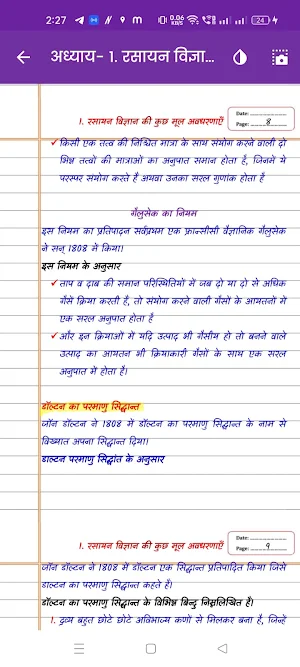 2:27
0.06 KB/S
24
अध्याय- 1. रसायन विज्ञा...
1. रसायन विज्ञान की कुछ मूल अवधारणाएँ
Date:
Page: 8
✓ किसी एक तत्व की निश्चित मात्रा के साथ संयोग करने वाली दो
भिन्न तत्वों की मात्राओं का अनुपात समान होता है, जिनमें ये
परस्पर संयोग करते हैं अथवा उनका सरल गुणांक होता है
गैलुसेक का नियम
इस नियम का प्रतिपादन सर्वप्रथम एक फ्रान्सीसी वैज्ञानिक गैलुसेक
ने सन् 1808 में किया।
इस नियम के अनुसार
✓ ताप व दाब की समान परिस्थितियों में जब दो या दो से अधिक
गैसें क्रिया करती हैं, तो संयोग करने वाली गैसों के आयतनों में
एक सरल अनुपात होता है
✓ और इन क्रियाओं में यदि उत्पाद भी गैसीय हो तो बनने वाले
उत्पाद का आयतन भी क्रियाकारी गैसों के साथ एक सरल
अनुपात में होता है।
डॉल्टन का परमाणु सिद्धान्त
जॉन डाल्टन ने 1808 में डॉल्टन का परमाणु सिद्धान्त के नाम से
विख्यात अपना सिद्धान्त दिया।
डाल्टन परमाणु सिद्धांत के अनुसार
1. रसायन विज्ञान की कुछ मूल अवधारणाएँ
Date:
Page: 9
जॉन डॉल्टन ने 1808 में डॉल्टन एक सिद्धान्त प्रतिपादित किया जिसे
डाल्टन का परमाणु सिद्धान्त कहते हैं।
डॉल्टन का परमाणु सिद्धान्त के विभिन्न बिन्दु निम्नलिखित हैं।
1. द्रव्य बहुत छोटे छोटे अविभाज्य कणों से मिलकर बना है, जिन्हें